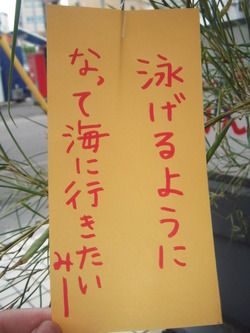 泳げるように
なって海に行きたい
みー